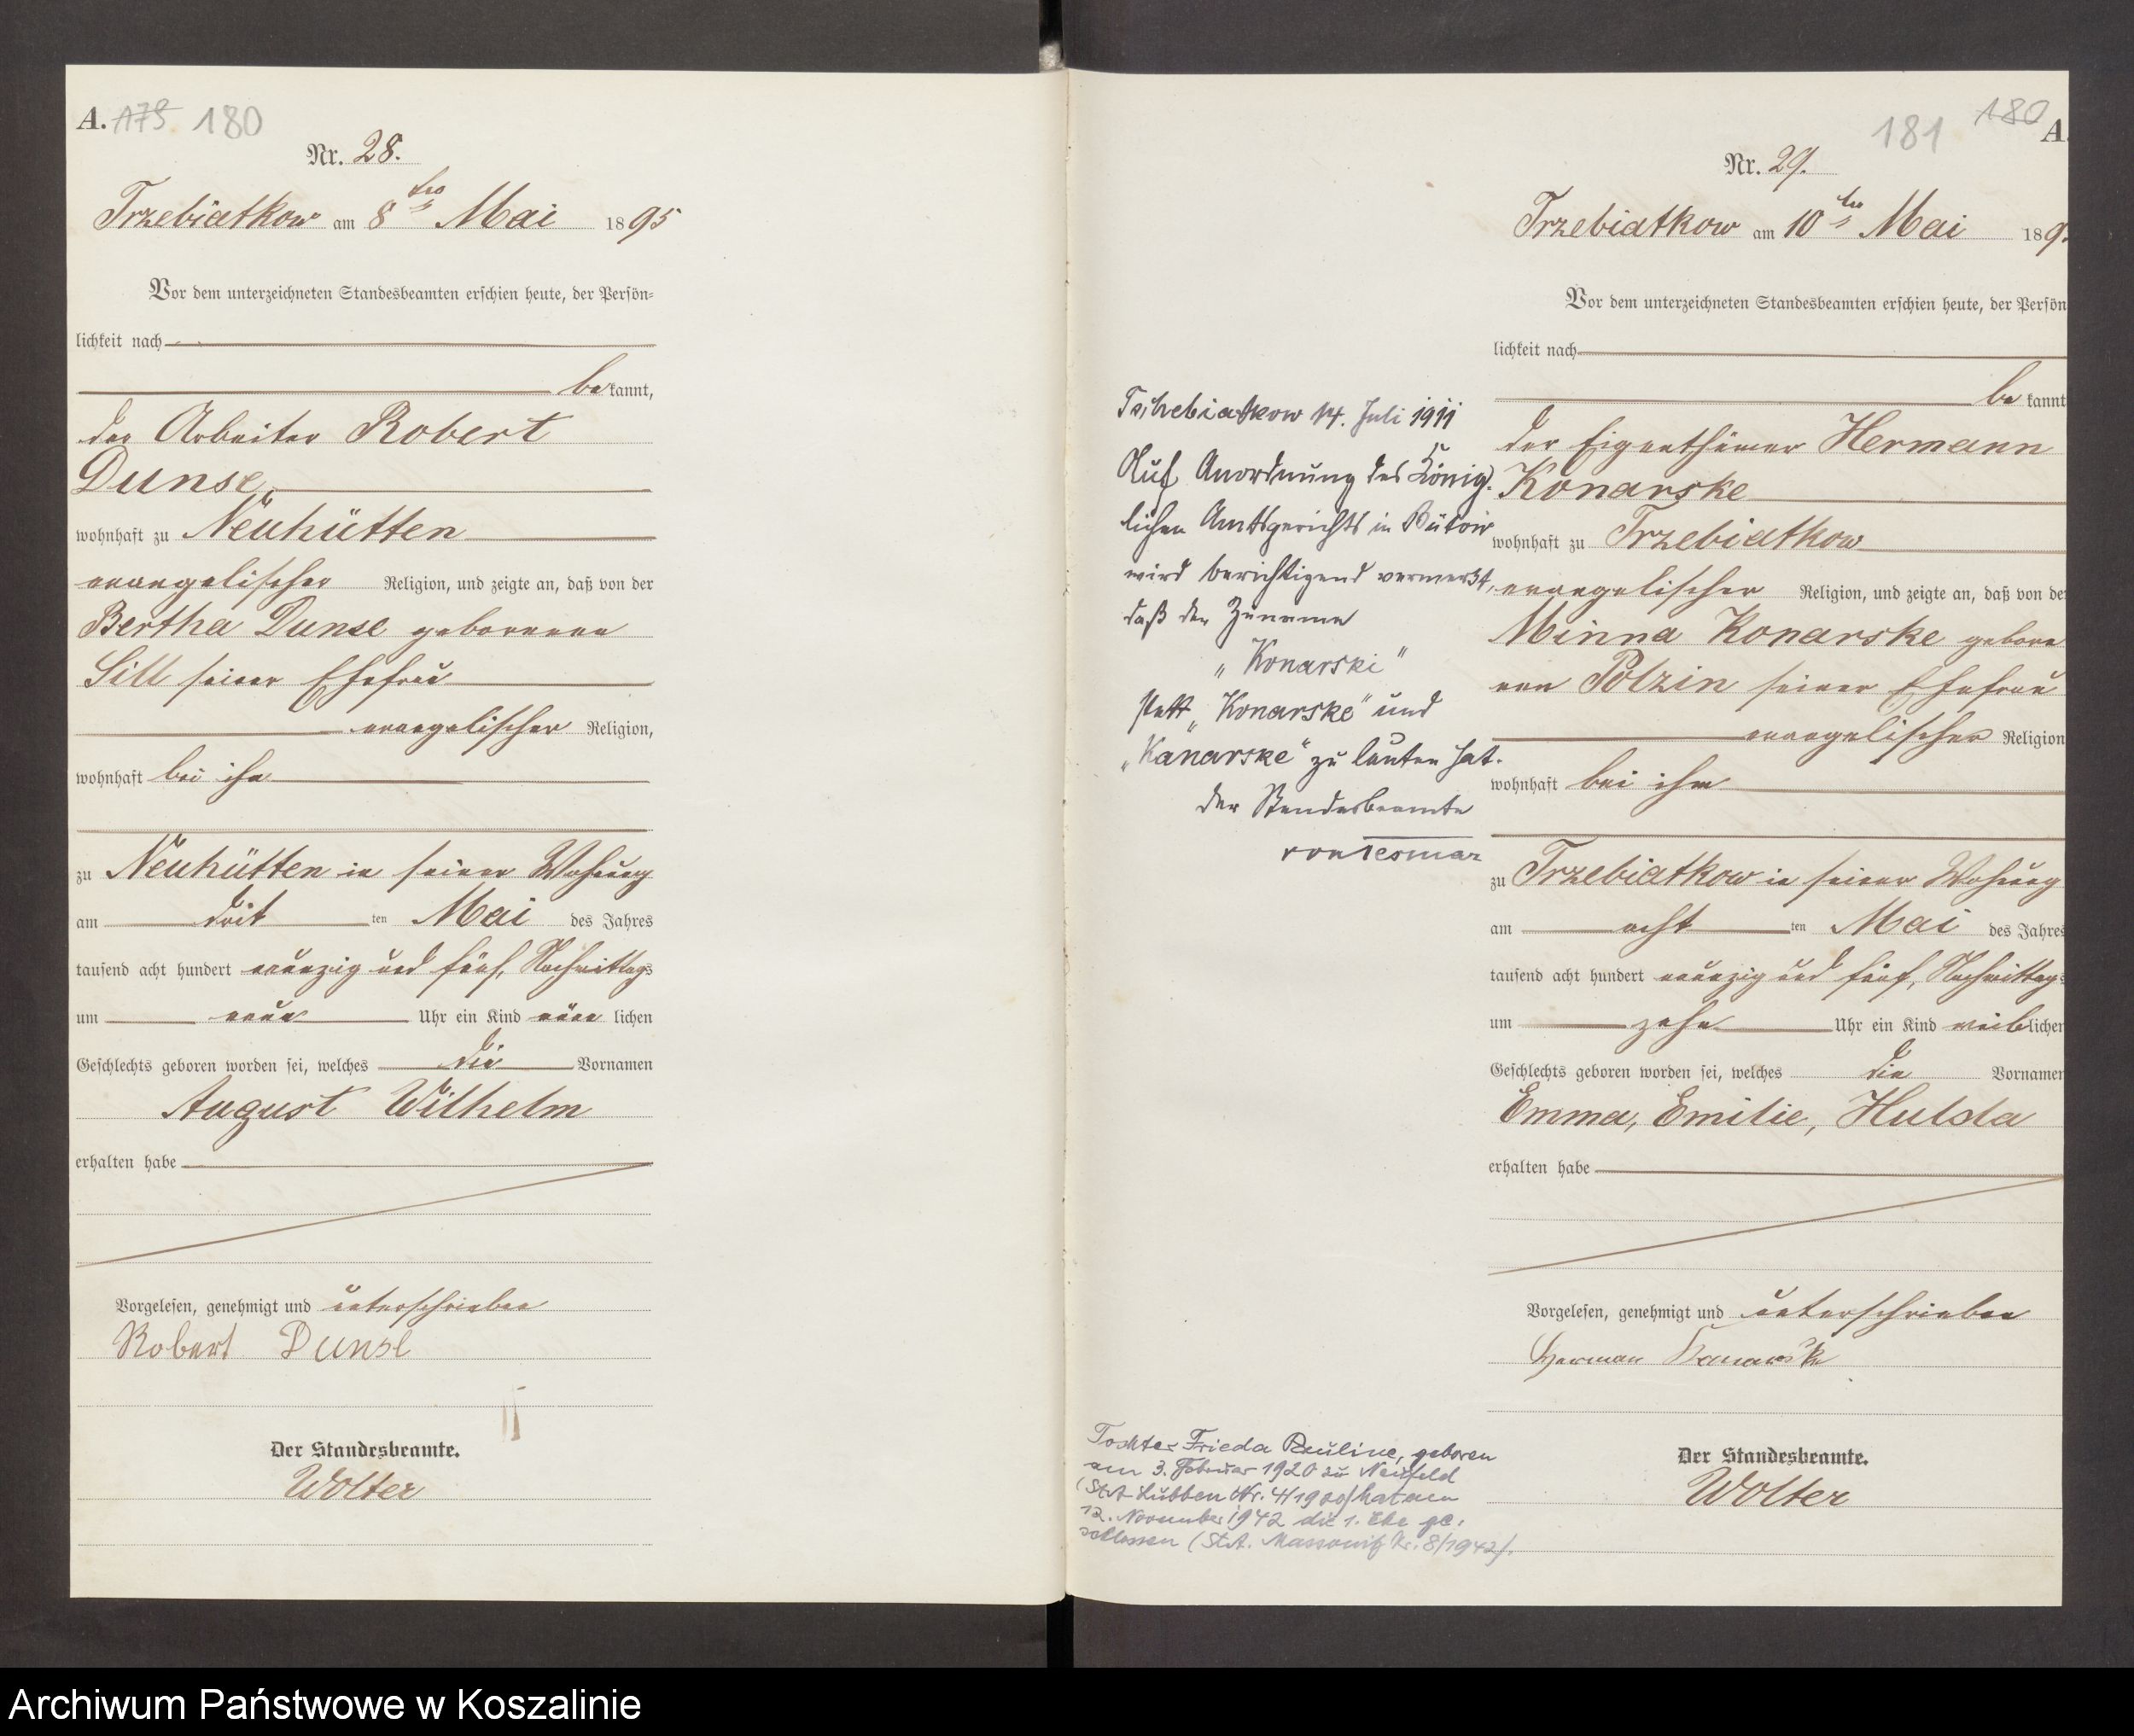 A. 179 180
Nr. 28.
Trzebiatkow am 8ten Mai 1895
Vor dem unterzeichneten Standesbeamten erschien heute, der Persön-
lichkeit nach
bekannt,
der Arbeiter Robert
Dunse,
wohnhaft zu Neuhütten
evangelischer Religion, und zeigte an, daß von der
Bertha Dunse geborenen
Sill seiner Ehefrau
evangelischer Religion,
wohnhaft bei ihm
zu Neuhütten in seiner Wohnung
am dritten Mai des Jahres
tausend acht hundert neunzig und fünf, Nachmittags
um neun Uhr ein Kind männlichen
Geschlechts geboren worden sei, welches die Vornamen
August Wilhelm
erhalten habe
Vorgelesen, genehmigt und unterschrieben
Robert Dunse
Der Standesbeamte.
Wolter
181 180 A.
Nr. 29.
Trzebiatkow am 10ten Mai 189
Vor dem unterzeichneten Standesbeamten erschien heute, der Persön
lichkeit nach
bekannt
der Eigenthümer Hermann
Konarske
wohnhaft zu Trzebiatkow
evangelischer Religion, und zeigte an, daß von der
Minna Konarske gebore
nen Polzin seiner Ehefrau
evangelischer Religion
wohnhaft bei ihm
zu Trzebiatkow in seiner Wohnung
am achtten Mai des Jahres
tausend acht hundert neunzig und fünf, Nachmittags
um zehn Uhr ein Kind weiblichen
Geschlechts geboren worden sei, welches die Vornamen
Emma, Emilie, Hulda
erhalten habe
Vorgelesen, genehmigt und unterschrieben
Herman Kanarske
Der Standesbeamte.
Wolter
Tschebiatkow 14. Juli 1911
Auf Anordnung des König-
lichen Amtsgerichts in Bütow
wird berichtigend vermerkt,
daß der Zuname
"Konarski"
statt "Konarske" und
"Kanarske" zu lauten hat.
Der Standesbeamte
von Tesmar
Tochter Frieda Pauline, geboren
am 3. Februar 1920 zu Neufeld
(StA Lubben Nr. 4/1920) hat am
12. November 1942 die 1. Ehe ge-
schlossen (StA. Massowitz Nr. 8/1942).
Archiwum Państwowe w Koszalinie